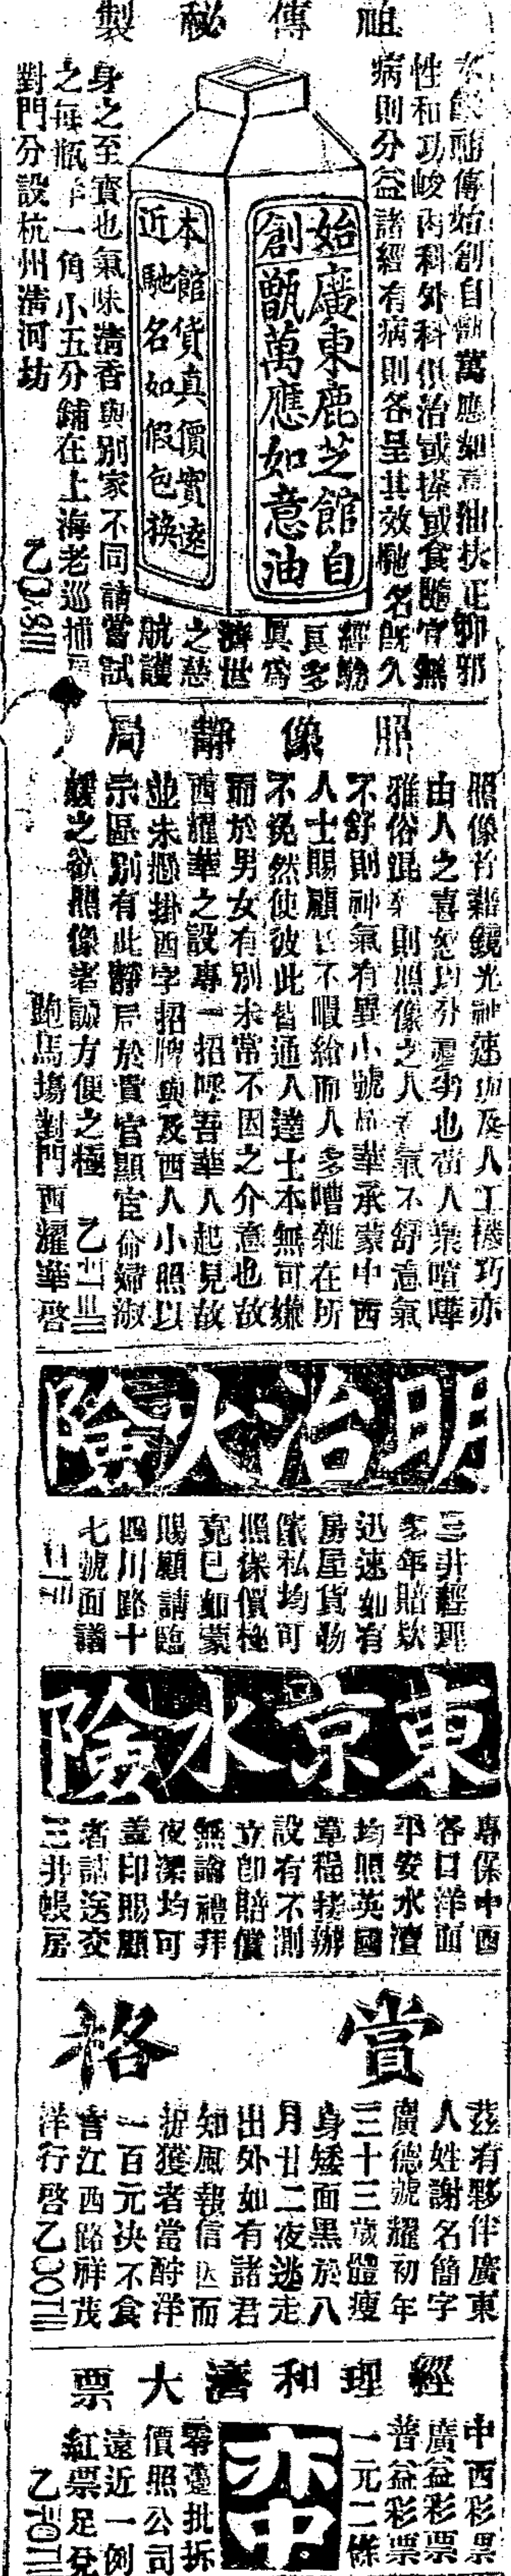 祖傳秘製
本館祖傳始創自甑萬應如意油扶正抑邪
性和功峻內科外科俱治或搽或食隨宜無
病則分益諸經有病則各呈其效馳名既久
經驗
良多
真為
濟世
之慈
航護
身之至寶也氣味清香與別家不同請嘗試
之每瓶洋一角小五分鋪在上海老巡捕房
對門分設杭州清河坊
始創
廣東鹿芝館自
甑萬應如意油
本館貨真價實遠
近馳名如假包換
照像靜局
照像於鏡光神速而及人工機巧亦
由人之喜怒為分優劣也當人衆喧嘩
雅俗混雜則照像之人氣不舒意氣
不舒則神氣有異小號耀華承蒙中西
人士賜顧日不暇給而人多嘈雜在所
不免然使彼此皆通人達士本無可嫌
而於男女有別未嘗不因之介意也故
西耀華之設專一招呼吾華人起見故
並未懸掛西字招牌與及西人小照以
示區別有此靜局於貴官顯宦命婦淑
媛之欲照像者誠方便之極
跑馬塲對門西耀華啓
明治火險
三井經理
多年賠欵
迅速如有
房屋貨物
傢私均可
照保價極
克己如蒙
賜顧請臨
四川路十
七號面議
東京水險
專保中西
各口洋面
平安水漬
均照英國
章程接辦
設有不測
立卽賠償
無論禮拜
夜深均可
蓋印賜顧
者請送交
三井帳房
賞格
茲有夥伴廣東
人姓謝名簡字
廣德號耀初年
三十三歲體瘦
身矮面黑於八
月廿二夜逃走
出外如有諸君
知風報信因而
捉獲者當酧洋
一百元决不食
言江西路祥茂
洋行啓
經理和濟大票
中西彩票
廣益彩票
普益彩票
一元二條
亦中
零躉批拆
價照公司
遠近一例
紅票足兌